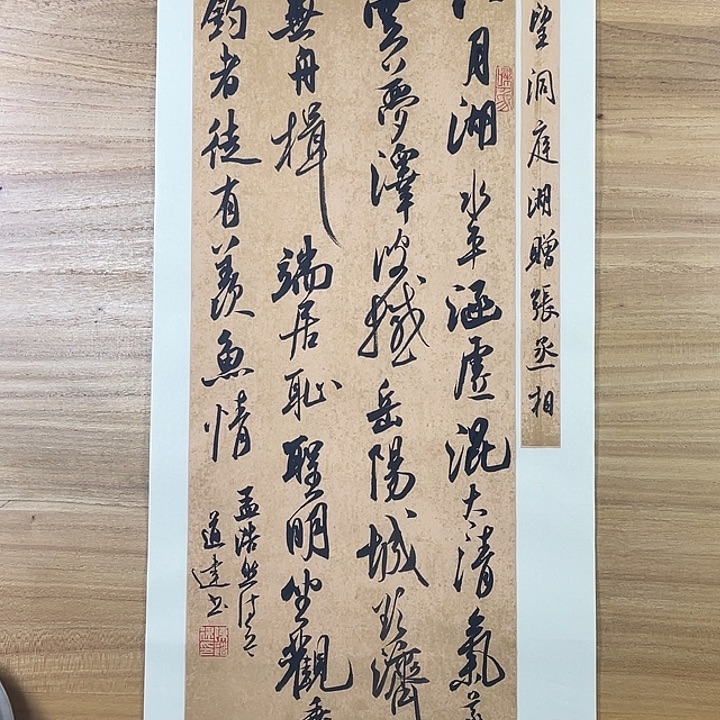 望洞庭湖赠張丞相
月湖水平涵虚混大清氣蒸
雲夢澤波撼岳陽城欲濟
無舟楫端居恥聖明坐觀垂
釣者徒有羨魚情
孟浩然诗意
道達书